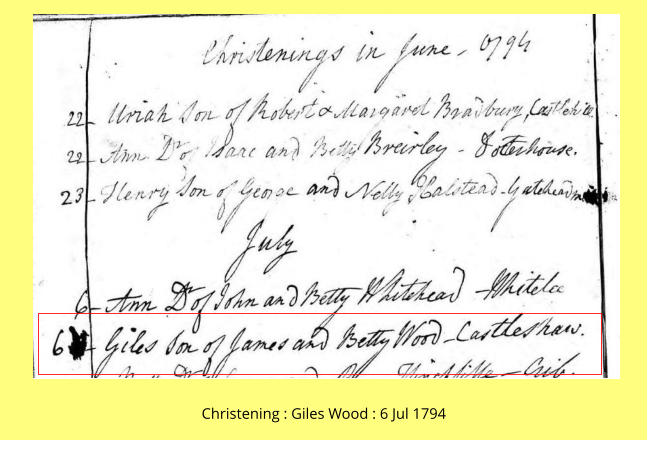 Christenings in June - 1794
22 - Uriah Son of Robert & Margaret Bradbury, Castlehill.
22 - Ann Dr of Isaac and Betty Breirley - Doctorhouse.
23 - Henry Son of George and Nelly Halstead - Gatehead
July
6 - Ann Dr of John and Betty Whitehead - Whitelee
6 - Giles Son of James and Betty Wood - Castleshaw.
Dr and Hinchliffe - Crib.
Christening : Giles Wood : 6 Jul 1794